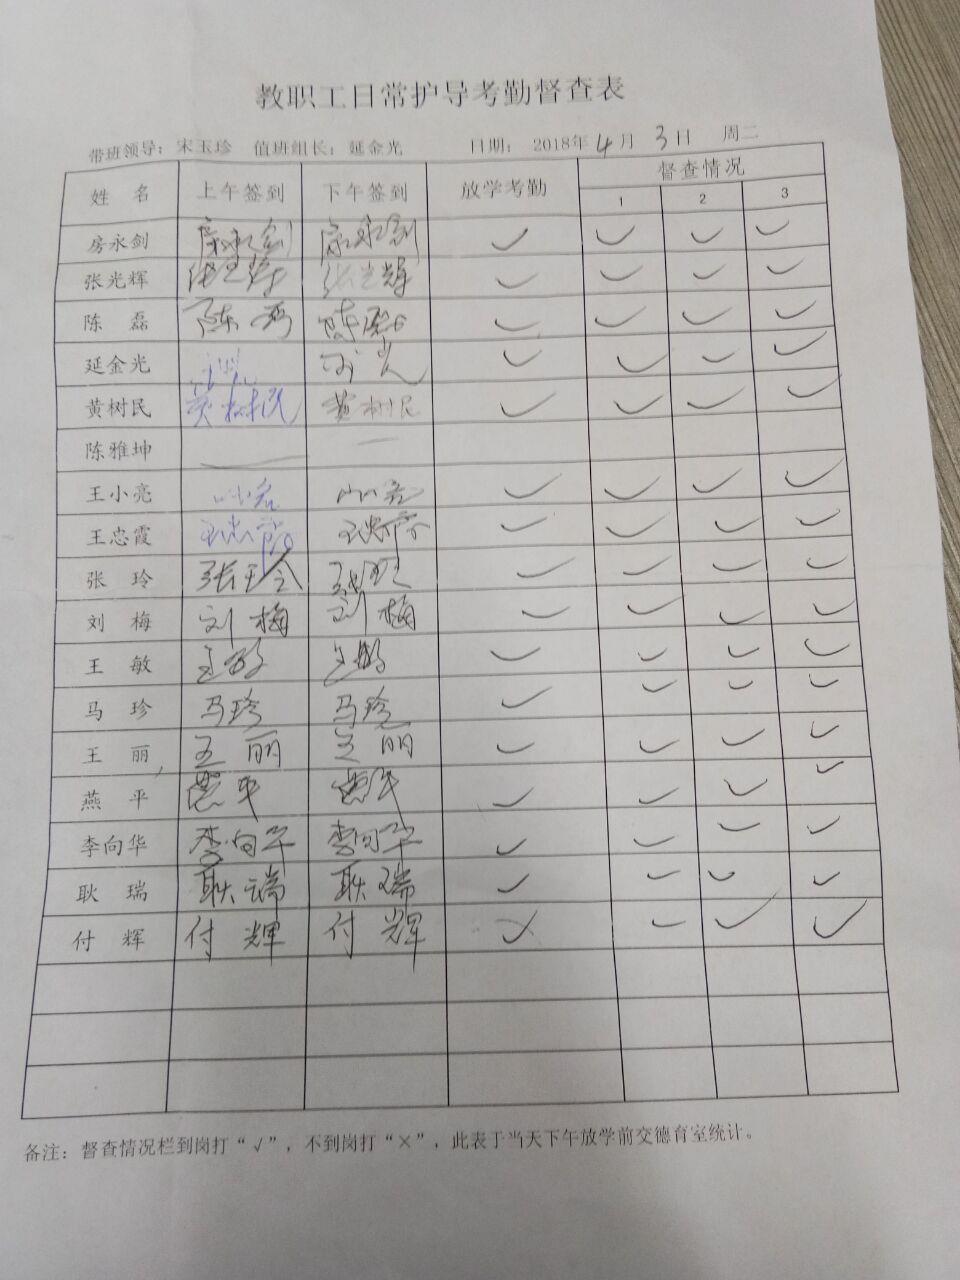 教职工日常护导考勤督查表
带班领导：宋玉珍 值班组长：延金光 日期： 2018年 4 月 3 日 周二
姓 名 上午签到 下午签到 放学考勤 督查情况
1 2 3
房永剑 房永剑 房永剑 ✓ ✓ ✓ ✓
张光辉 张光辉 张光辉 ✓ ✓ ✓ ✓
陈 磊 陈磊 陈磊 ✓ ✓ ✓ ✓
延金光 ✓ ✓ ✓ ✓
黄树民 黄树民 黄树民 ✓ ✓ ✓ ✓
陈雅坤 — —
王小亮 ✓ ✓ ✓ ✓
王忠霞 王忠霞 王忠霞 ✓ ✓ ✓ ✓
张 玲 张玲 张玲 ✓ ✓ ✓ ✓
刘 梅 刘梅 刘梅 ✓ ✓ ✓ ✓
王 敏 王敏 王敏 ✓ ✓ ✓ ✓
马 珍 马珍 马珍 ✓ ✓ ✓ ✓
王 丽 王丽 王丽 ✓ ✓ ✓ ✓
燕 平 燕平 燕平 ✓ ✓ ✓ ✓
李向华 李向华 李向华 ✓ ✓ ✓ ✓
耿 瑞 耿瑞 耿瑞 ✓ ✓ ✓ ✓
付 辉 付辉 付辉 ✓ ✓ ✓ ✓
备注：督查情况栏到岗打“√”，不到岗打“×”，此表于当天下午放学前交德育室统计。